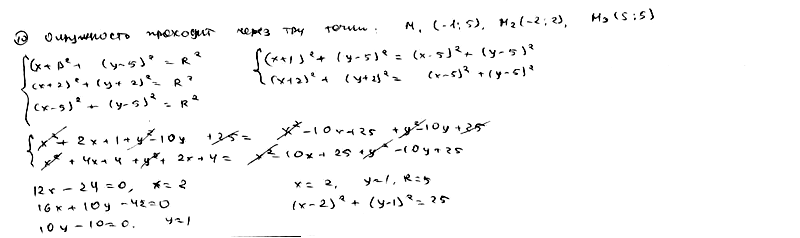 10 Окружность проходит через три точки: M₁ (-1;5), M₂(-2;2), M₃(5;5)
(x+1)² + (y-5)² = R²
(x+2)² + (y+2)² = R²
(x-5)² + (y-5)² = R²
(x+1)² + (y-5)² = (x-5)² + (y-5)²
(x+2)² + (y+2)² = (x-5)² + (y-5)²
x² + 2x+1+y²-10y +25 = x²-10x+25 +y²-10y+25
x² + 4x+4 +y²+ 2x+4 = x²-10x+25+y²-10y+25
12x - 24=0, x=2
16x+10y-42=0
10y-10=0. y=1
x=2, y=1, R=5
(x-2)² + (y-1)² = 25